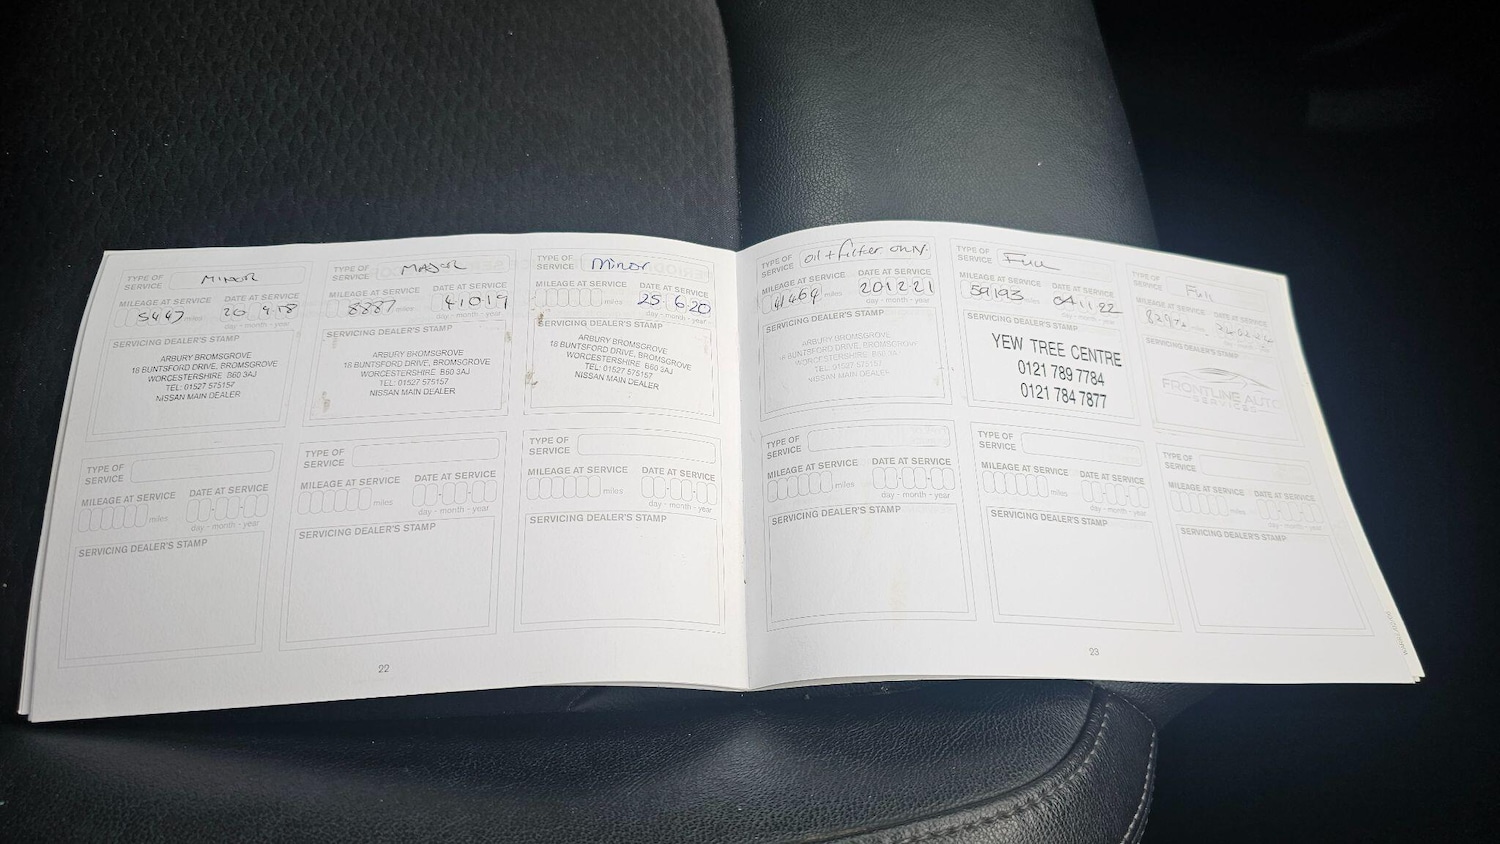 TYPE OF SERVICE MINOR
MILEAGE AT SERVICE DATE AT SERVICE
5447 miles 20 9.18
day - month - year
SERVICING DEALER'S STAMP
ARBURY BROMSGROVE
18 BUNTSFORD DRIVE, BROMSGROVE
WORCESTERSHIRE B60 3AJ
TEL: 01527 575157
NISSAN MAIN DEALER
TYPE OF SERVICE MAJOR
MILEAGE AT SERVICE DATE AT SERVICE
8887 miles 4 10 19
day - month - year
SERVICING DEALER'S STAMP
ARBURY BROMSGROVE
18 BUNTSFORD DRIVE, BROMSGROVE
WORCESTERSHIRE B60 3AJ
TEL: 01527 575157
NISSAN MAIN DEALER
TYPE OF SERVICE Minor
MILEAGE AT SERVICE DATE AT SERVICE
miles 25 6 20
day - month - year
SERVICING DEALER'S STAMP
ARBURY BROMSGROVE
18 BUNTSFORD DRIVE, BROMSGROVE
WORCESTERSHIRE B60 3AJ
TEL: 01527 575157
NISSAN MAIN DEALER
TYPE OF SERVICE oil + filter only.
MILEAGE AT SERVICE DATE AT SERVICE
41464 miles 201221
day - month - year
SERVICING DEALER'S STAMP
ARBURY BROMSGROVE
18 BUNTSFORD DRIVE, BROMSGROVE
WORCESTERSHIRE B60 3AJ
TEL: 01527 575157
NISSAN MAIN DEALER
TYPE OF SERVICE Full
MILEAGE AT SERVICE DATE AT SERVICE
59193 miles 041122
day - month - year
SERVICING DEALER'S STAMP
YEW TREE CENTRE
0121 789 7784
0121 784 7877
TYPE OF SERVICE Full
MILEAGE AT SERVICE DATE AT SERVICE
SERVICING DEALER'S STAMP
FRONTLINE AUTO
SERVICES
TYPE OF SERVICE
MILEAGE AT SERVICE DATE AT SERVICE
miles
day - month - year
SERVICING DEALER'S STAMP
TYPE OF SERVICE
MILEAGE AT SERVICE DATE AT SERVICE
miles
day - month - year
SERVICING DEALER'S STAMP
TYPE OF SERVICE
MILEAGE AT SERVICE DATE AT SERVICE
miles
day - month - year
SERVICING DEALER'S STAMP
TYPE OF SERVICE
MILEAGE AT SERVICE DATE AT SERVICE
miles
day - month - year
SERVICING DEALER'S STAMP
TYPE OF SERVICE
MILEAGE AT SERVICE DATE AT SERVICE
miles
day - month - year
SERVICING DEALER'S STAMP
TYPE OF SERVICE
MILEAGE AT SERVICE DATE AT SERVICE
miles
SERVICING DEALER'S STAMP
22
23